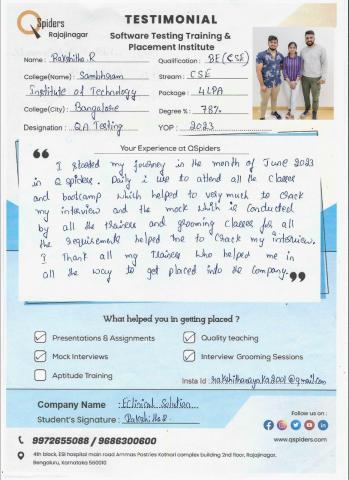 QSpiders
Rajajinagar
TESTIMONIAL
Software Testing Training &
Placement Institute
Name : Rakshitha.R
Qualification : BE(CSE)
College(Name) : Sambhram
Stream : CSE
Institute of Technology
Package : 4LPA
College(City) : Bangalore
Degree % : 78%
Designation : QA Testing
YOP : 2023
Your Experience at QSpiders
I started my journey in the month of June 2023
in Q spiders. Daily i use to attend all the classes
and bootcamp which helped to very much to crack
my interview and the mock which is conducted
by all the trainers and grooming classes for all
the requirements helped me to crack my interview.
I Thank all my Trainers who helped me in
all the way to get placed into the company.
What helped you in getting placed ?
Presentations & Assignments
Quality teaching
Mock Interviews
Interview Grooming Sessions
Aptitude Training
Insta Id :
Company Name : EClinical Solution
Student's Signature : Rakshitha.R
Follow us on :
9972655088 / 9686300600
www.qspiders.com
4th block, ESI hospital main road Ammas Pastries Kothari complex building 2nd floor, Rajajinagar,
Bengaluru, Karnataka 560010